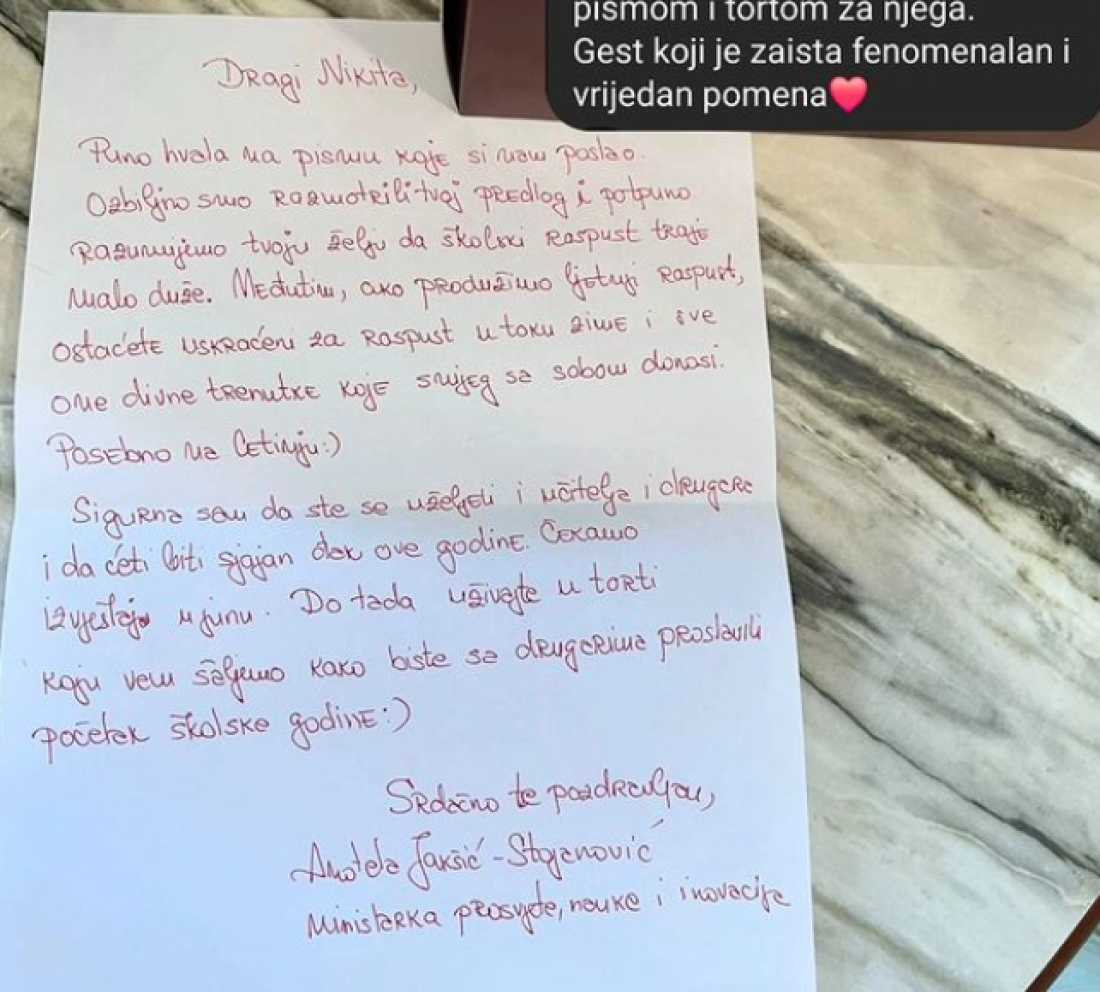 pismom i tortom za njega.
Gest koji je zaista fenomenalan i
vrijedan pomena❤️
Dragi Nikita,
Puno hvala na pismu koje si nam poslao.
Ozbiljno smo razmotrili tvoj predlog i potpuno
razumijemo tvoju želju da školski raspust traje
malo duže. Međutim, ako produžimo ljetnji raspust,
ostaćete uskraćeni za raspust u toku zime i sve
one divne trenutke koje snijeg sa sobom donosi.
Posebno na Cetinju:)
Sigurna sam da ste se uželjeli i učitelja i drugara
i da ćeti biti sjajan đak ove godine. Čekamo
izvještaj u junu. Do tada uživajte u torti
koju vam šaljemo kako biste sa drugarima proslavili
početak školske godine:)
Srdačno te pozdravljam,
Anđela Jakšić-Stojanović
Ministarka prosvjete, nauke i inovacija